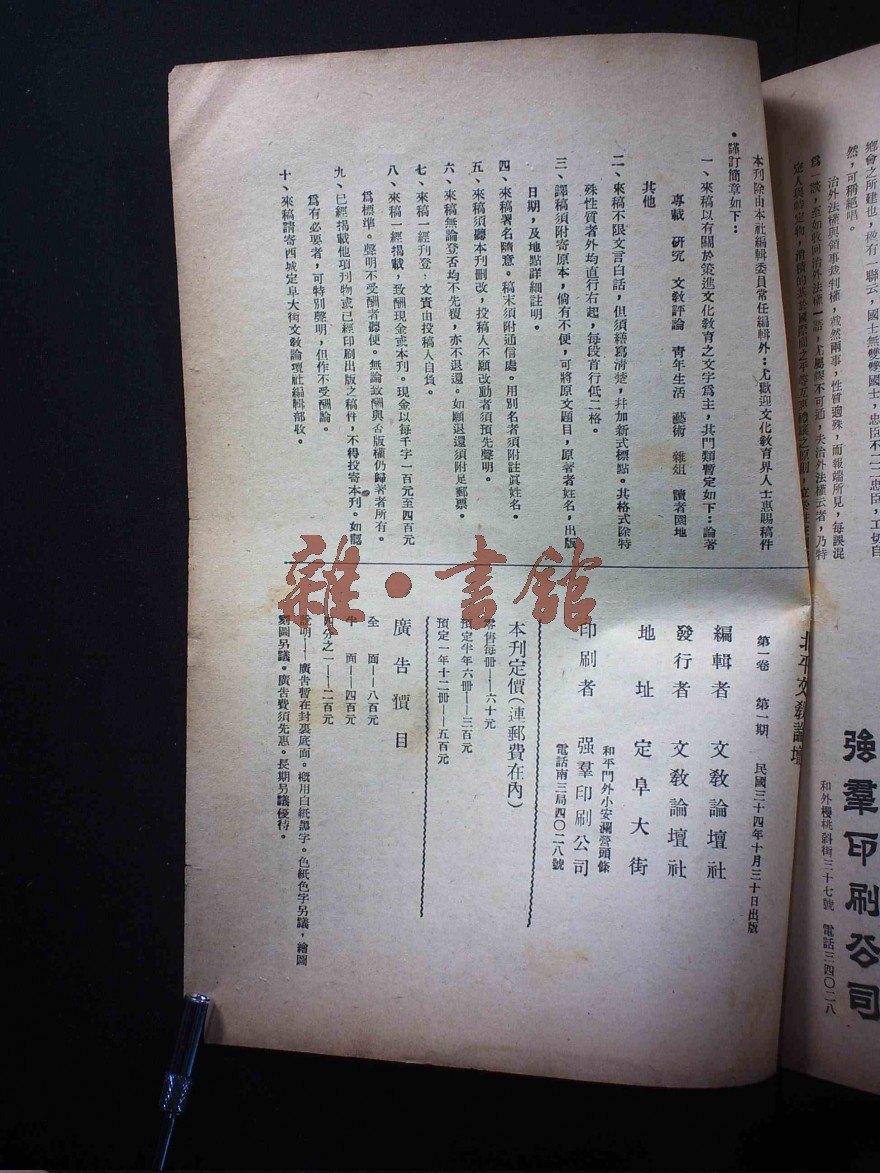 本刊除由本社編輯委員常任編輯外：尤歡迎文化教育界人士惠賜稿件
。謹訂簡章如下：
一、來稿以有關於策進文化教育之文字爲主，其門類暫定如下：論著
專載　研究　文教評論　青年生活　藝術　雜俎　讀者園地
其他
二、來稿不限文言白話，但須繕寫清楚，幷加新式標點。其格式除特
殊性質者外均直行右起，每段首行低二格。
三、譯稿須附寄原本，倘有不便，可將原文題目，原著者姓名，出版
日期，及地點詳細註明。
四、來稿署名隨意。稿末須附通信處。用別名者須附註眞姓名。
五、來稿須聽本刊刪改，投稿人不願改動者須預先聲明。
六、來稿無論登否均不先覆，亦不退還。如願退還須附足郵票。
七、來稿一經刊登：文責由投稿人自負。
八、來稿一經揭載，致酬現金或本刊。現金以每千字一百元至四百元
爲標準。聲明不受酬者聽便。無論致酬與否版權仍歸著者所有。
九、已經揭載他項刊物或已經印刷出版之稿件，不得投寄本刊。如認
爲有必要者，可特別聲明，但作不受酬論。
十、來稿請寄西城定阜大街文教論壇社編輯部收。
北平文教論壇
第一卷　第一期　民國三十四年十月三十日出版
編輯者　文教論壇社
發行者　文教論壇社
地址　定阜大街
和平門外小安瀾營頭條
印刷者　强羣印刷公司
電話南三局四〇二八號
本刊定價（連郵費在內）
零售每冊——六十元
預定半年六冊——三百元
預定一年十二冊——五百元
廣告價目
全　面——八百元
半　面——四百元
四分之一——二百元
說明——廣告暫在封裏底面。概用白紙黑字。色紙色字另議，繪圖
製圖另議。廣告費須先惠。長期另議優待。
鄉會之所建也，檄有一聯云，國士無雙雙國士，忠臣不二二忠臣，工切自
然，可稱絕唱。
治外法權與領事裁判權，截然兩事，性質適殊，而報端所見，每誤混
爲一談，至如收回治外法權一語，尤屬謬不可通，夫治外法權云者，乃特
定人與特定物，
强羣印刷公司
和外櫻桃斜街三十七號　電話三四〇二八
雜·書館